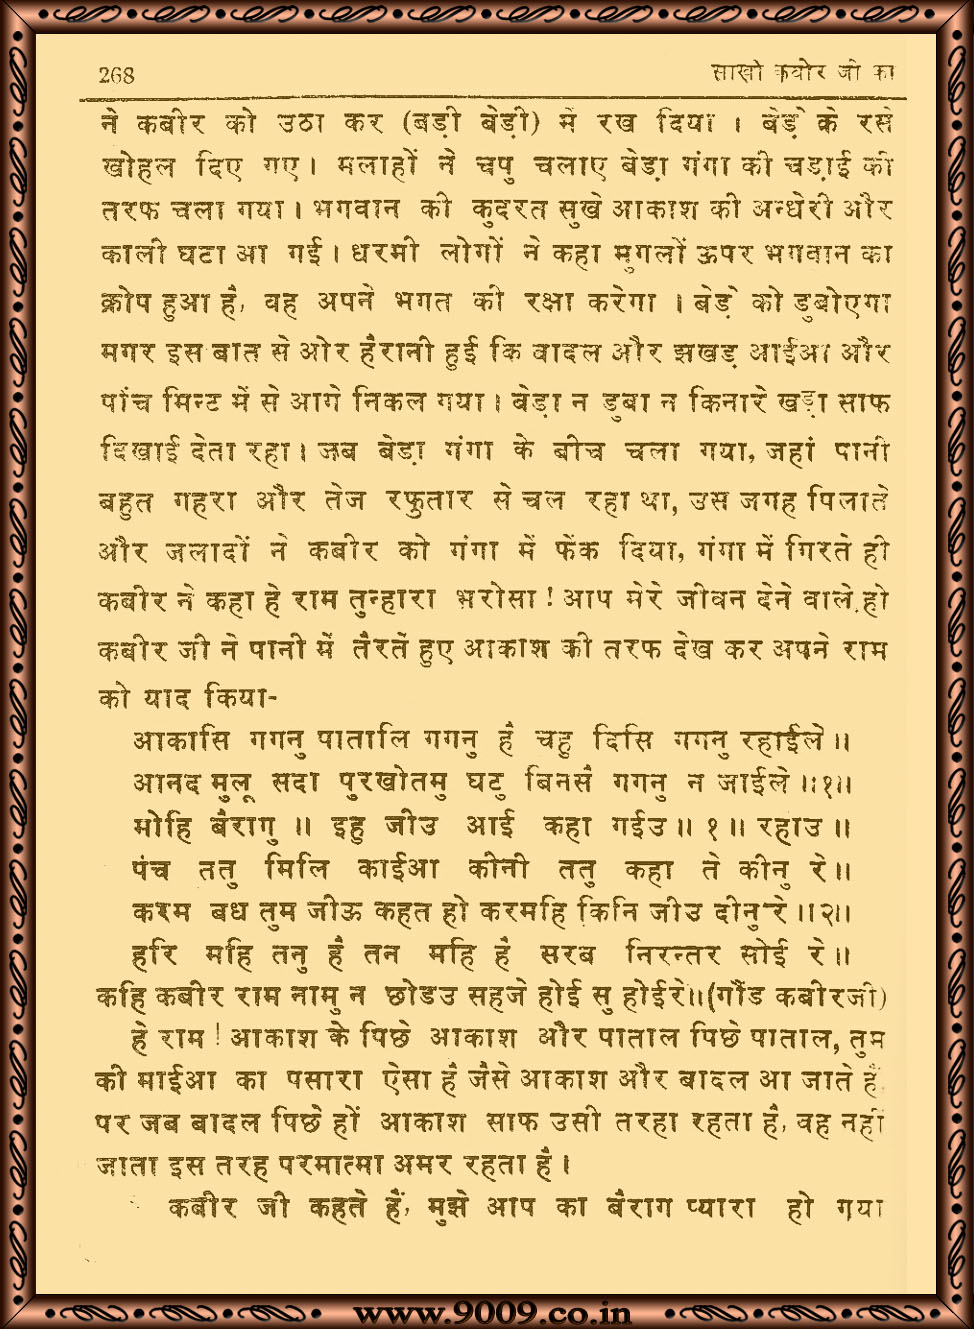 268 साखी कबीर जी का
ने कबीर को उठा कर (बड़ी बेड़ी) में रख दिया । बेड़े के रसे
खोहल दिए गए। मलाहों ने चपु चलाए बेड़ा गंगा की चड़ाई की
तरफ चला गया। भगवान की कुदरत सुखे आकाश की अन्धेरी और
काली घटा आ गई। धरमी लोगों ने कहा मुगलों ऊपर भगवान का
क्रोप हुआ है, वह अपने भगत की रक्षा करेगा । बेड़े को डुबोएगा
मगर इस बात से ओर हैरानी हुई कि वादल और झखड़ आईआ और
पांच मिन्ट में से आगे निकल गया। बेड़ा न डुबा न किनारे खड़ा साफ
दिखाई देता रहा। जब बेड़ा गंगा के बीच चला गया, जहां पानी
बहुत गहरा और तेज रफुतार से चल रहा था, उस जगह पिलाते
और जलादों ने कबीर को गंगा में फेंक दिया, गंगा में गिरते ही
कबीर ने कहा हे राम तुन्हारा भरोसा ! आप मेरे जीवन देने वाले हो
कबीर जी ने पानी में तैरते हुए आकाश की तरफ देख कर अपने राम
को याद किया-
आकासि गगनु पातालि गगनु है चहु दिसि गगनु रहाईले ॥
आनद मुलू सदा पुरखोतमु घटु बिनसै गगनु न जाईले ॥१॥
मोहि बैरागु ॥ इहु जीउ आई कहा गईउ ॥ १ ॥ रहाउ ॥
पंच ततु मिलि काईआ कीनी ततु कहा ते कीनु रे ॥
करम बध तुम जीऊ कहत हो करमहि किनि जीउ दीनु रे ॥२॥
हरि महि तनु है तन महि है सरब निरन्तर सोई रे ॥
कहि कबीर राम नामु न छोडउ सहजे होई सु होईरे॥(गौंड कबीरजी)
हे राम ! आकाश के पिछे आकाश और पाताल पिछे पाताल, तुम
की माईआ का पसारा ऐसा है जैसे आकाश और बादल आ जाते हैं,
पर जब बादल पिछे हों आकाश साफ उसी तरहा रहता है, वह नहीं
जाता इस तरह परमात्मा अमर रहता है ।
कबीर जी कहते हैं, मुझे आप का बैराग प्यारा हो गया
www.9009.co.in